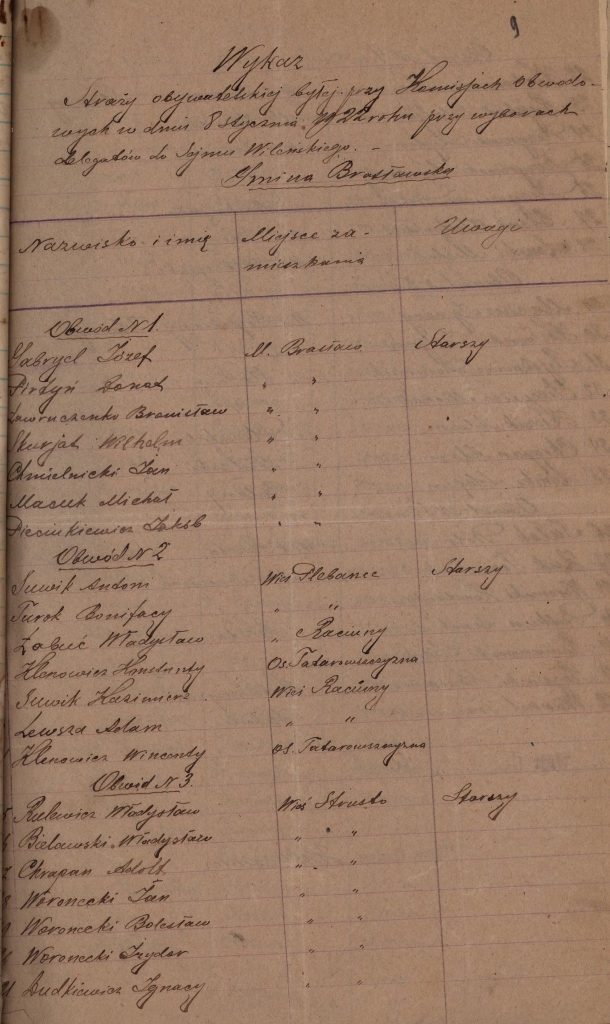 9
Wykaz
Straży obywatelskiej byłej przy Komisjach Obwodo-
wych w dniu 8 stycznia 1922 roku przy wyborach
delegatów do Sejmu Wileńskiego. -
Gmina Brasławska
Nazwisko i imię Miejsce za- Uwagi
mieszkania
Obwód N 1.
Gabryel Józef M. Brasław Starszy
Donat " "
Bronisław " "
Skurjat Wilhelm " "
Chmielnicki Jan " "
Masiuk Michał " "
Pieciukiewicz Jakób " "
Obwód N 2
Suwik Antoni Wieś Plebańce Starszy
Turok Bonifacy " "
Władysław " Raciuny
Klenowicz Konstanty Os. Tatarowszczyzna
Suwik Kazimierz Wieś Raciuny
Lewsza Adam " "
Klenowicz Wincenty Os. Tatarowszczyzna
Obwód N 3.
Rulewicz Władysław Wieś Strusto Starszy
Bielawski Władysław " "
Chrapan Adolf " "
8 Woronecki Jan " "
Woronecki Bolesław " "
Woronecki Izydor " "
21 Dudkiewicz Ignacy " "